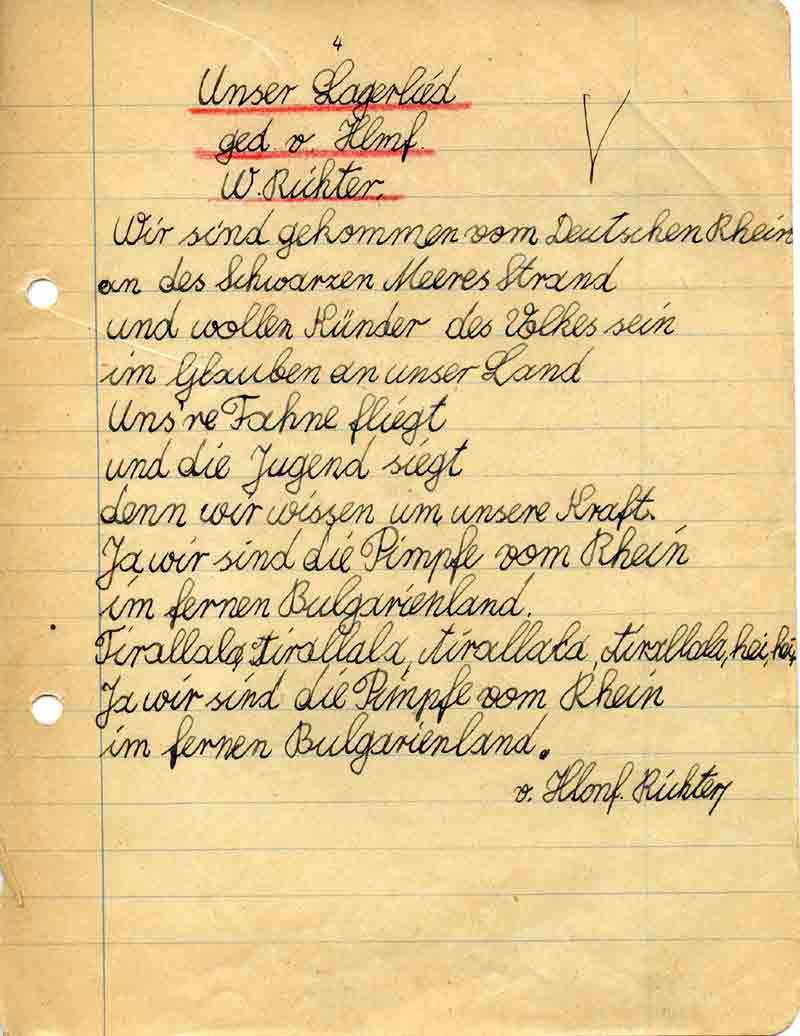 4
Unser Lagerlied
ged. v. Hlmf.
W. Richter.
Wir sind gekommen vom Deutschen Rhein
an des Schwarzen Meeres Strand
und wollen Künder des Volkes sein
im Glauben an unser Land
Uns're Fahne fliegt
und die Jugend siegt
denn wir wissen um unsere Kraft.
Ja wir sind die Pimpfe vom Rhein
im fernen Bulgarienland.
Tirallala, tirallala, tirallala, tirallala, hei, hei,
Ja wir sind die Pimpfe vom Rhein
im fernen Bulgarienland.
v. Hlonf. Richter